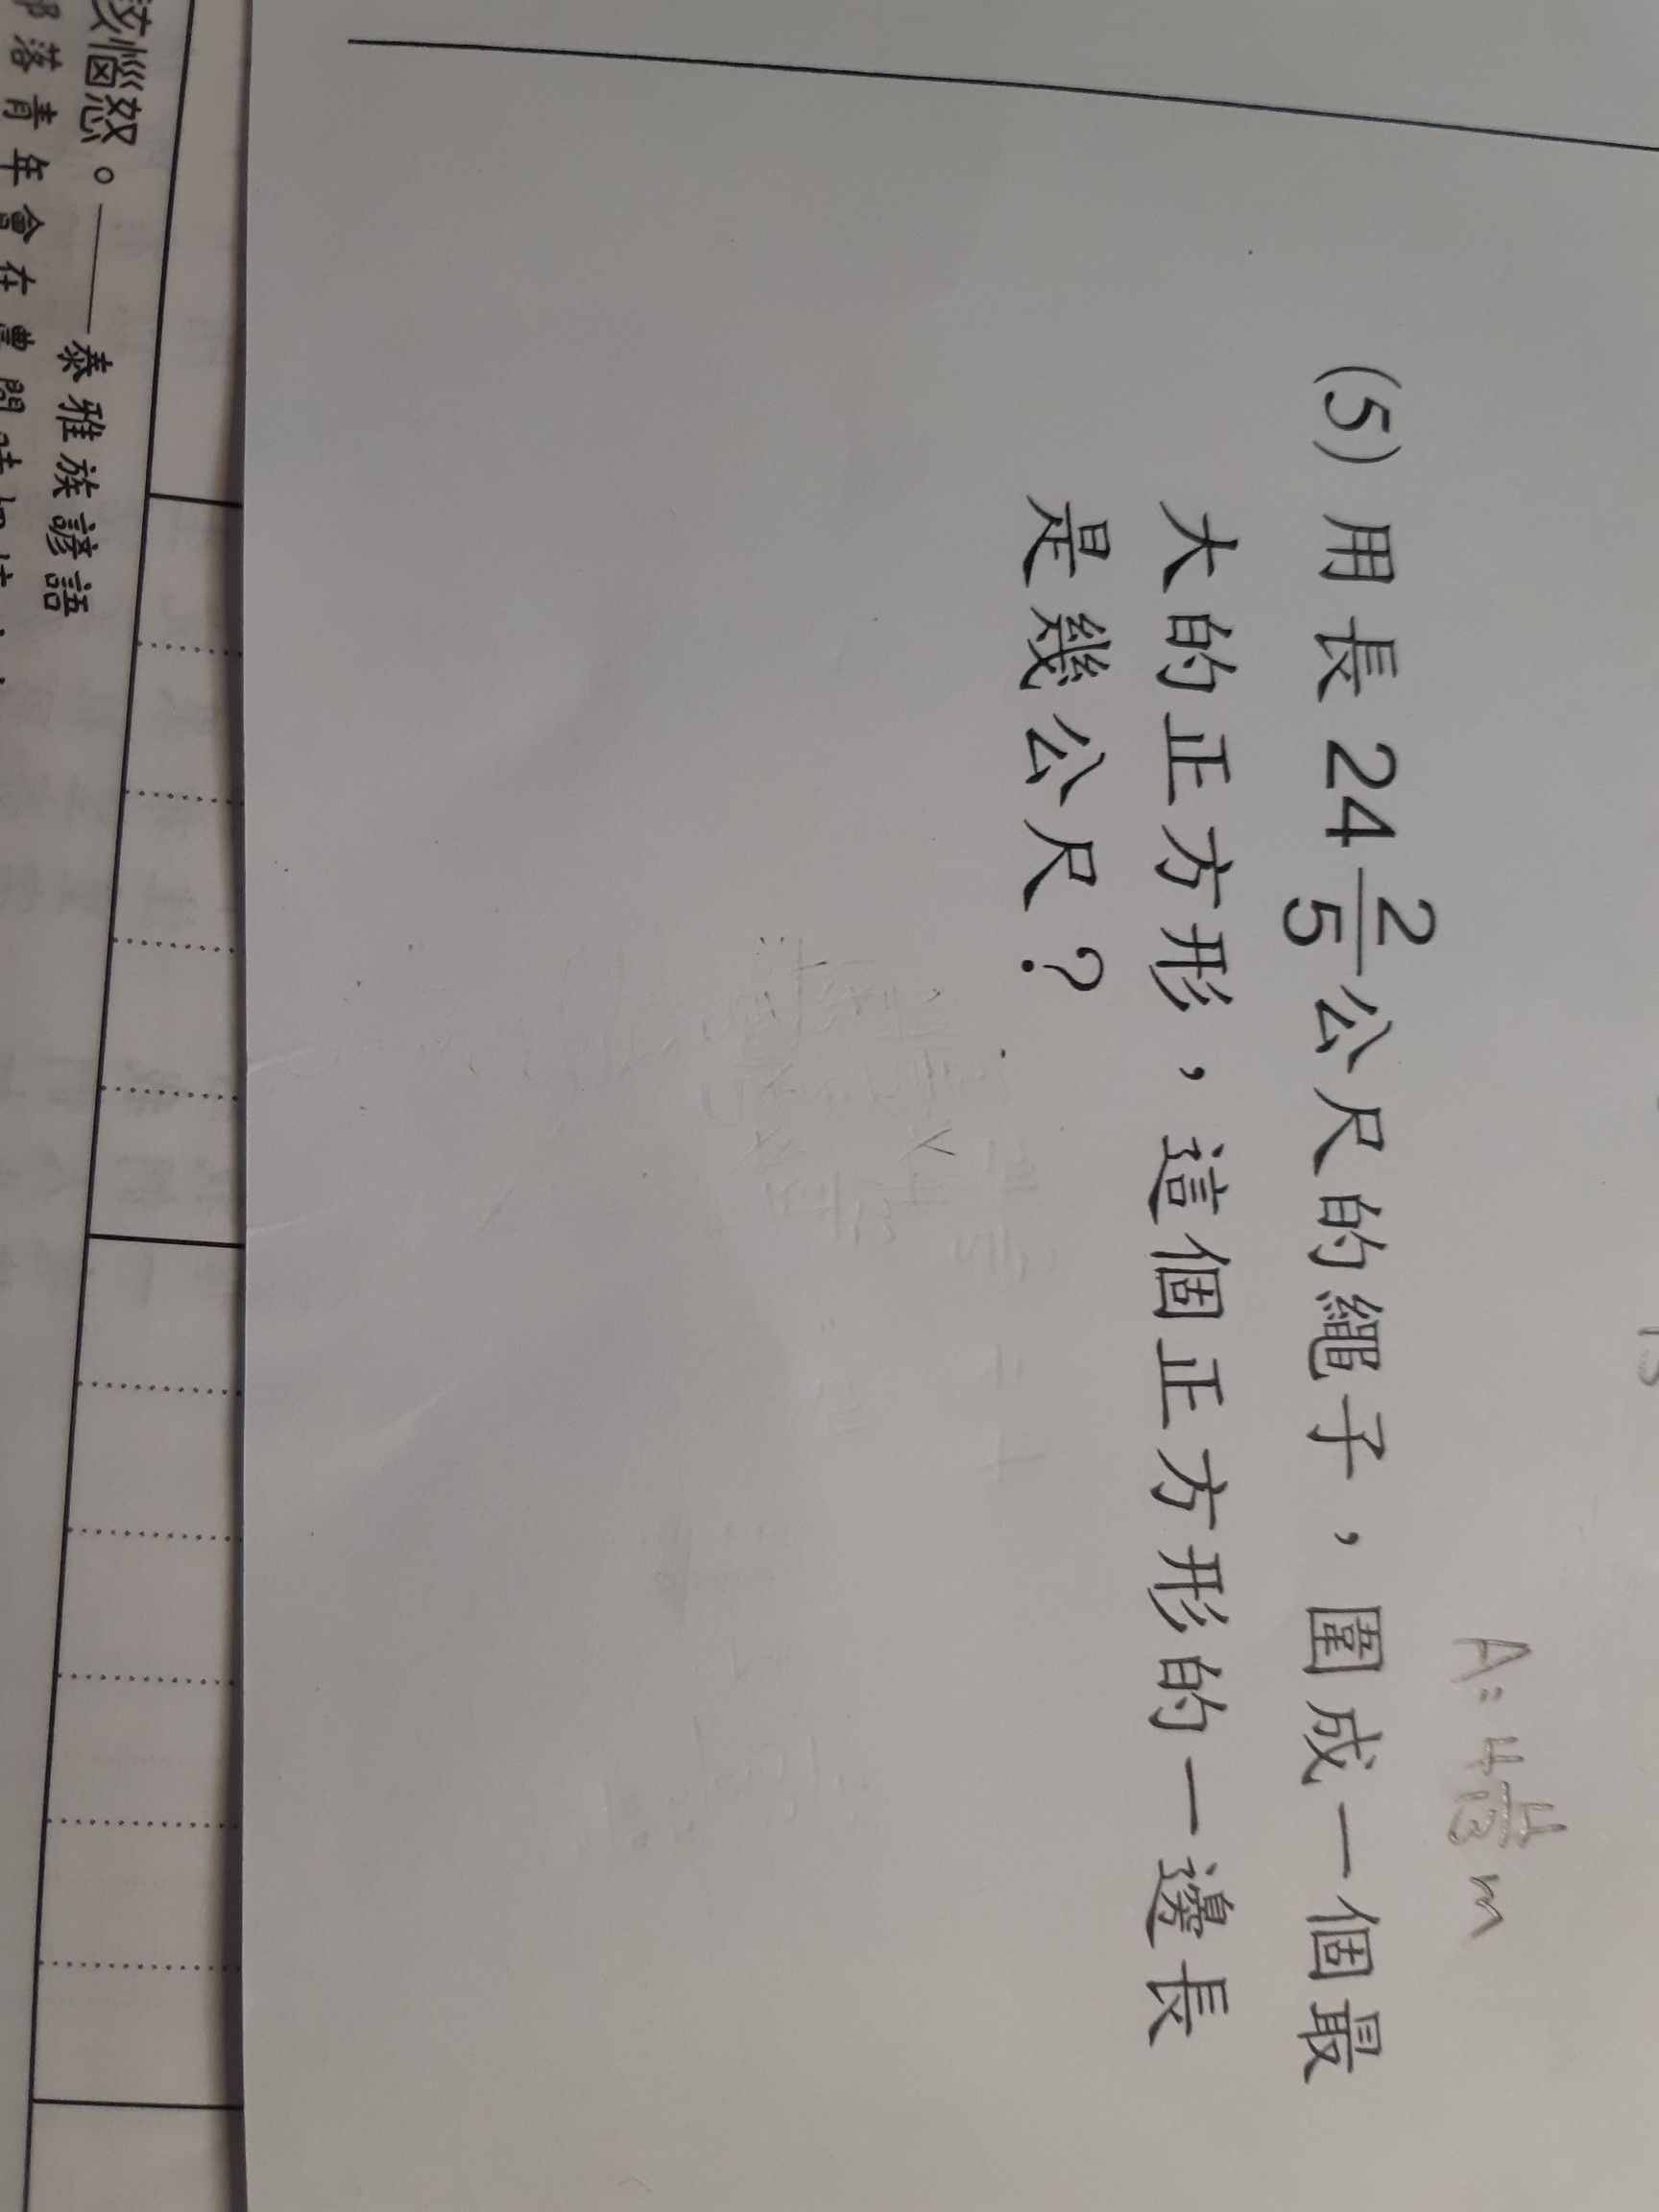 A: 4 4/13 m
(5) 用長 24 2/5 公尺的繩子，圍成一個最
大的正方形，這個正方形的一邊長
是幾公尺？
惱怒。——泰雅族諺語
部落青年會在農閒時